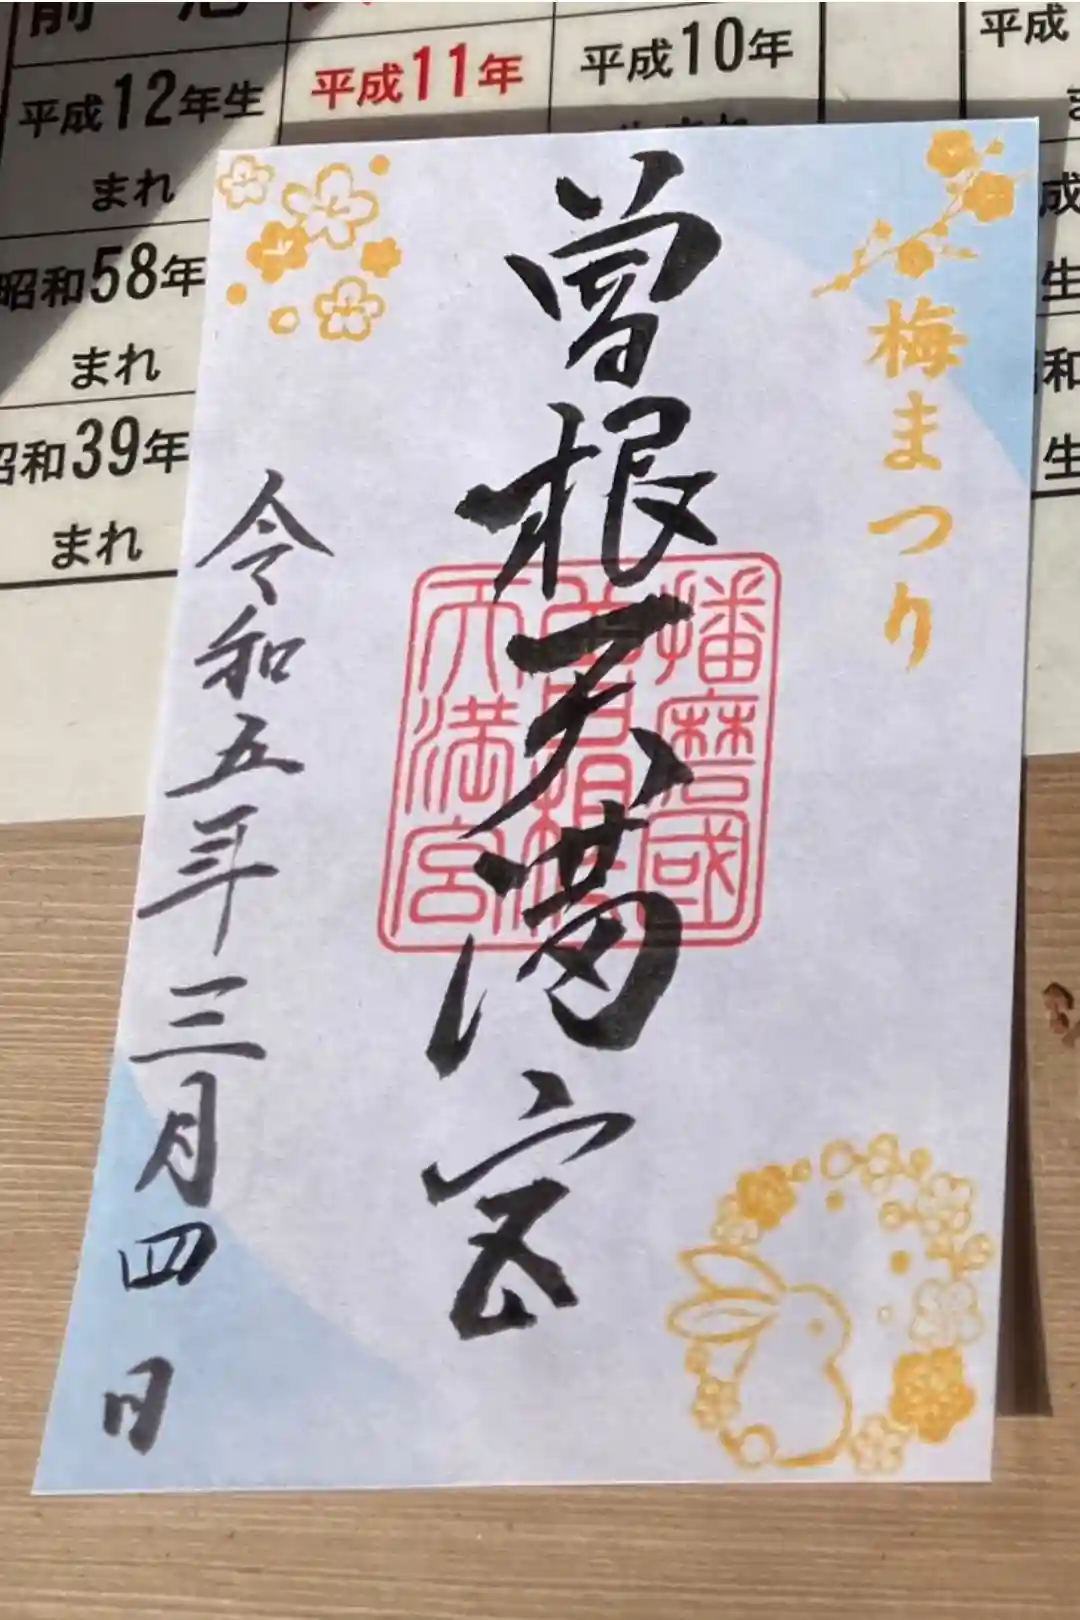 平成12年生
まれ
昭和58年
まれ
昭和39年
まれ
平成11年
平成10年
平成
梅まつり
曽根天満宮
播磨國
曽根
天満宮
令和五年三月四日